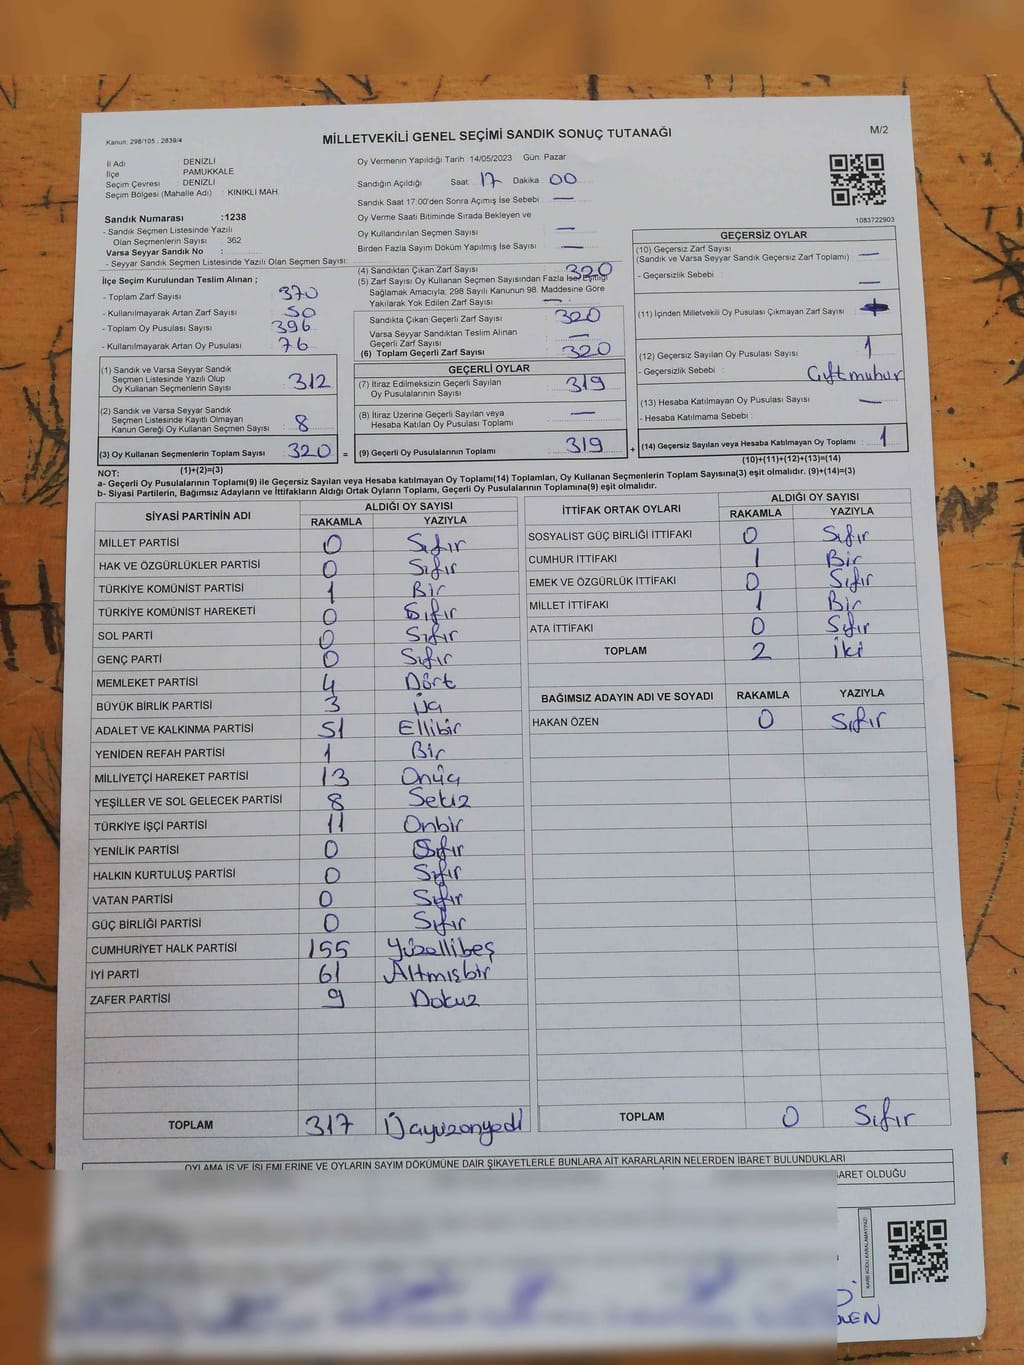 Kanun: 298/105 , 2839/4
MİLLETVEKİLİ GENEL SEÇİMİ SANDIK SONUÇ TUTANAĞI
M/2
İl Adı DENİZLİ
İlçe PAMUKKALE
Seçim Çevresi DENİZLİ
Seçim Bölgesi (Mahalle Adı) KINIKLI MAH.
Sandık Numarası :1238
- Sandık Seçmen Listesinde Yazılı
Olan Seçmenlerin Sayısı : 362
Varsa Seyyar Sandık No :
- Seyyar Sandık Seçmen Listesinde Yazılı Olan Seçmen Sayısı:
Oy Vermenin Yapıldığı Tarih 14/05/2023 Gün: Pazar
Sandığın Açıldığı Saat 17 Dakika 00
Sandık Saat 17:00'den Sonra Açımış İse Sebebi —
Oy Verme Saati Bitiminde Sırada Bekleyen ve
Oy Kullandırılan Seçmen Sayısı —
Birden Fazla Sayım Döküm Yapılmış İse Sayısı —
1083722903
İlçe Seçim Kurulundan Teslim Alınan ;
- Toplam Zarf Sayısı 370
- Kullanılmayarak Artan Zarf Sayısı 50
- Toplam Oy Pusulası Sayısı 396
- Kullanılmayarak Artan Oy Pusulası 76
(1) Sandık ve Varsa Seyyar Sandık
Seçmen Listesinde Yazılı Olup
Oy Kullanan Seçmenlerin Sayısı : 312
(2) Sandık ve Varsa Seyyar Sandık
Seçmen Listesinde Kayıtlı Olmayan
Kanun Gereği Oy Kullanan Seçmen Sayısı : 8
(3) Oy Kullanan Seçmenlerin Toplam Sayısı : 320 =
(1)+(2)=(3)
(4) Sandıktan Çıkan Zarf Sayısı 320
(5) Zarf Sayısı Oy Kullanan Seçmen Sayısından Fazla İse Eşitliği
Sağlamak Amacıyla; 298 Sayılı Kanunun 98. Maddesine Göre
Yakılarak Yok Edilen Zarf Sayısı —
Sandıkta Çıkan Geçerli Zarf Sayısı 320
Varsa Seyyar Sandıktan Teslim Alınan
Geçerli Zarf Sayısı —
(6) Toplam Geçerli Zarf Sayısı 320
GEÇERLİ OYLAR
(7) İtiraz Edilmeksizin Geçerli Sayılan
Oy Pusulalarının Sayısı 319
(8) İtiraz Üzerine Geçerli Sayılan veya
Hesaba Katılan Oy Pusulası Toplamı —
(9) Geçerli Oy Pusulalarının Toplamı 319 +
GEÇERSİZ OYLAR
(10) Geçersiz Zarf Sayısı
(Sandık ve Varsa Seyyar Sandık Geçersiz Zarf Toplamı) —
- Geçersizlik Sebebi : —
(11) İçinden Milletvekili Oy Pusulası Çıkmayan Zarf Sayısı
(12) Geçersiz Sayılan Oy Pusulası Sayısı 1
- Geçersizlik Sebebi : Çift mühür
(13) Hesaba Katılmayan Oy Pusulası Sayısı —
- Hesaba Katılmama Sebebi :
(14) Geçersiz Sayılan veya Hesaba Katılmayan Oy Toplamı : 1
(10)+(11)+(12)+(13)=(14)
NOT:
a- Geçerli Oy Pusulalarının Toplamı(9) ile Geçersiz Sayılan veya Hesaba katılmayan Oy Toplamı(14) Toplamları, Oy Kullanan Seçmenlerin Toplam Sayısına(3) eşit olmalıdır. (9)+(14)=(3)
b- Siyasi Partilerin, Bağımsız Adayların ve İttifakların Aldığı Ortak Oyların Toplamı, Geçerli Oy Pusulalarının Toplamına(9) eşit olmalıdır.
SİYASİ PARTİNİN ADI ALDIĞI OY SAYISI
RAKAMLA YAZIYLA
MİLLET PARTİSİ 0 Sıfır
HAK VE ÖZGÜRLÜKLER PARTİSİ 0 Sıfır
TÜRKİYE KOMÜNİST PARTİSİ 1 Bir
TÜRKİYE KOMÜNİST HAREKETİ 0 Sıfır
SOL PARTİ 0 Sıfır
GENÇ PARTİ 0 Sıfır
MEMLEKET PARTİSİ 4 Dört
BÜYÜK BİRLİK PARTİSİ 3 Üç
ADALET VE KALKINMA PARTİSİ 51 Ellibir
YENİDEN REFAH PARTİSİ 1 Bir
MİLLİYETÇİ HAREKET PARTİSİ 13 Onüç
YEŞİLLER VE SOL GELECEK PARTİSİ 8 Sekiz
TÜRKİYE İŞÇİ PARTİSİ 11 Onbir
YENİLİK PARTİSİ 0 Sıfır
HALKIN KURTULUŞ PARTİSİ 0 Sıfır
VATAN PARTİSİ 0 Sıfır
GÜÇ BİRLİĞİ PARTİSİ 0 Sıfır
CUMHURİYET HALK PARTİSİ 155 Yüzellibeş
İYİ PARTİ 61 Altmışbir
ZAFER PARTİSİ 9 Dokuz
TOPLAM 317 Üçyüzonyedi
İTTİFAK ORTAK OYLARI ALDIĞI OY SAYISI
RAKAMLA YAZIYLA
SOSYALİST GÜÇ BİRLİĞİ İTTİFAKI 0 Sıfır
CUMHUR İTTİFAKI 1 Bir
EMEK VE ÖZGÜRLÜK İTTİFAKI 0 Sıfır
MİLLET İTTİFAKI 1 Bir
ATA İTTİFAKI 0 Sıfır
TOPLAM 2 İki
BAĞIMSIZ ADAYIN ADI VE SOYADI RAKAMLA YAZIYLA
HAKAN ÖZEN 0 Sıfır
TOPLAM 0 Sıfır
OYLAMA İŞ VE İŞLEMLERİNE VE OYLARIN SAYIM DÖKÜMÜNE DAİR ŞİKAYETLERLE BUNLARA AİT KARARLARIN NELERDEN İBARET BULUNDUKLARI
BARET OLDUĞU
KARE KODU KARALAMAYINIZ!